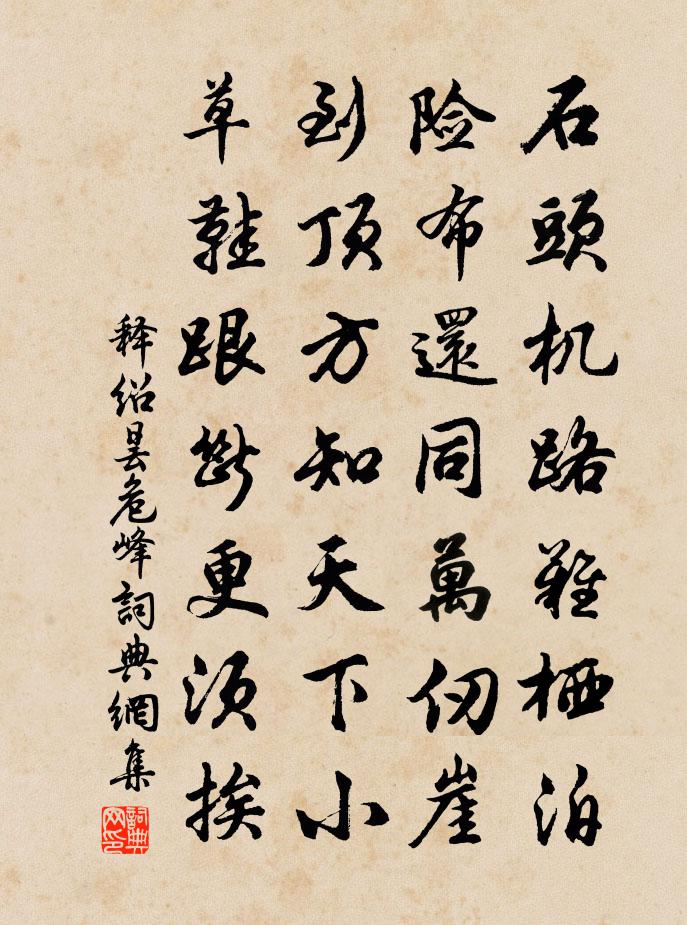 石頭机路難栖泊
险布還同萬仞崖
到顶方知天下小
草鞋跟斷更须挨
释绍昙危峰詞典網集
詞典网印